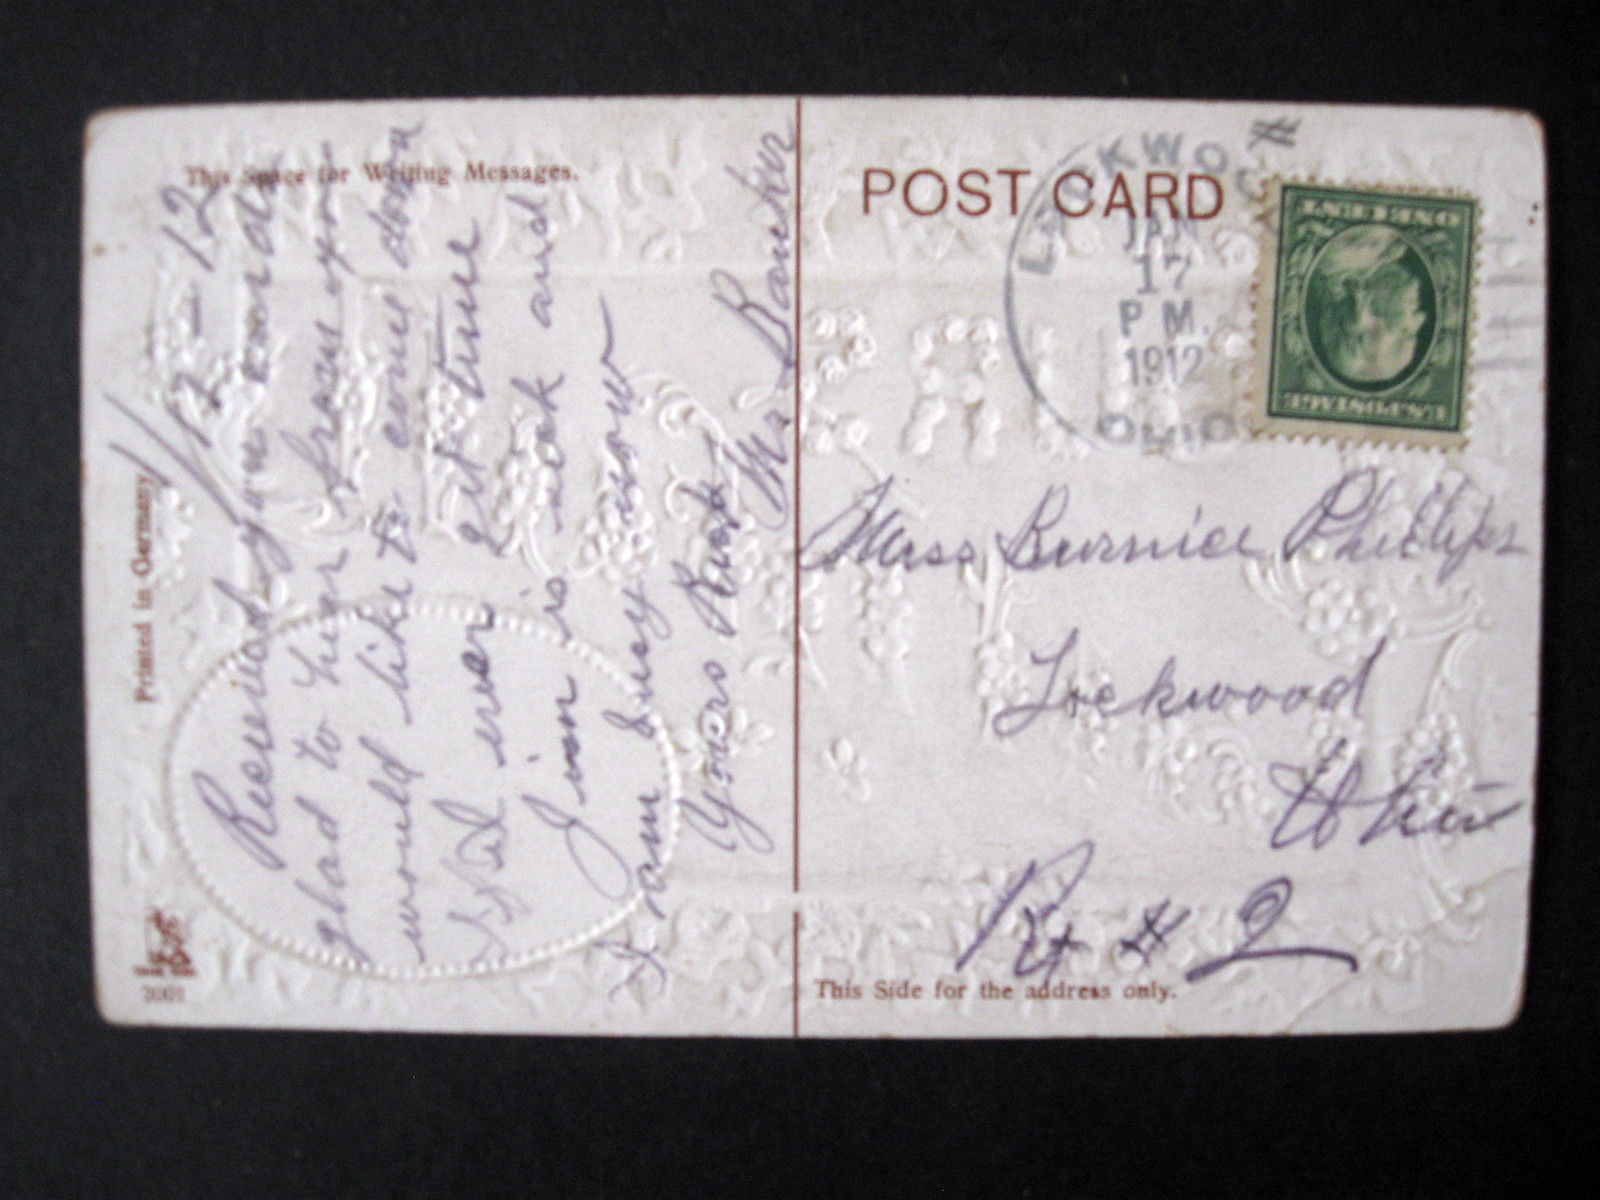 This Space for Writing Messages.
1/17-12
Received your card
glad to hear from you
would like to come down
if I ever get time
Jim is sick and
I am busy now
Yours Resp
Mr Banker
Printed in Germany
2001
POST CARD
LOCKWOOD
JAN
17
P M.
1912
OHIO
U.S. POSTAGE
ONE CENT
Miss Burnice Phillips
Lockwood
Ohio
Rt # 2
This Side for the address only.